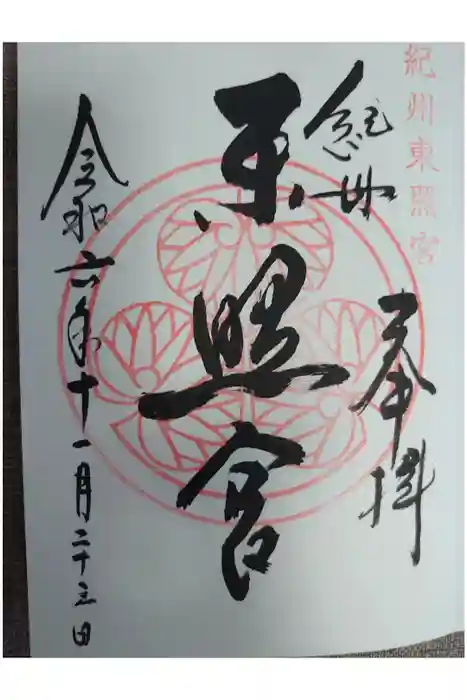 紀州東照宮
奉拝
紀州
東照宮
令和六年十一月二十三日